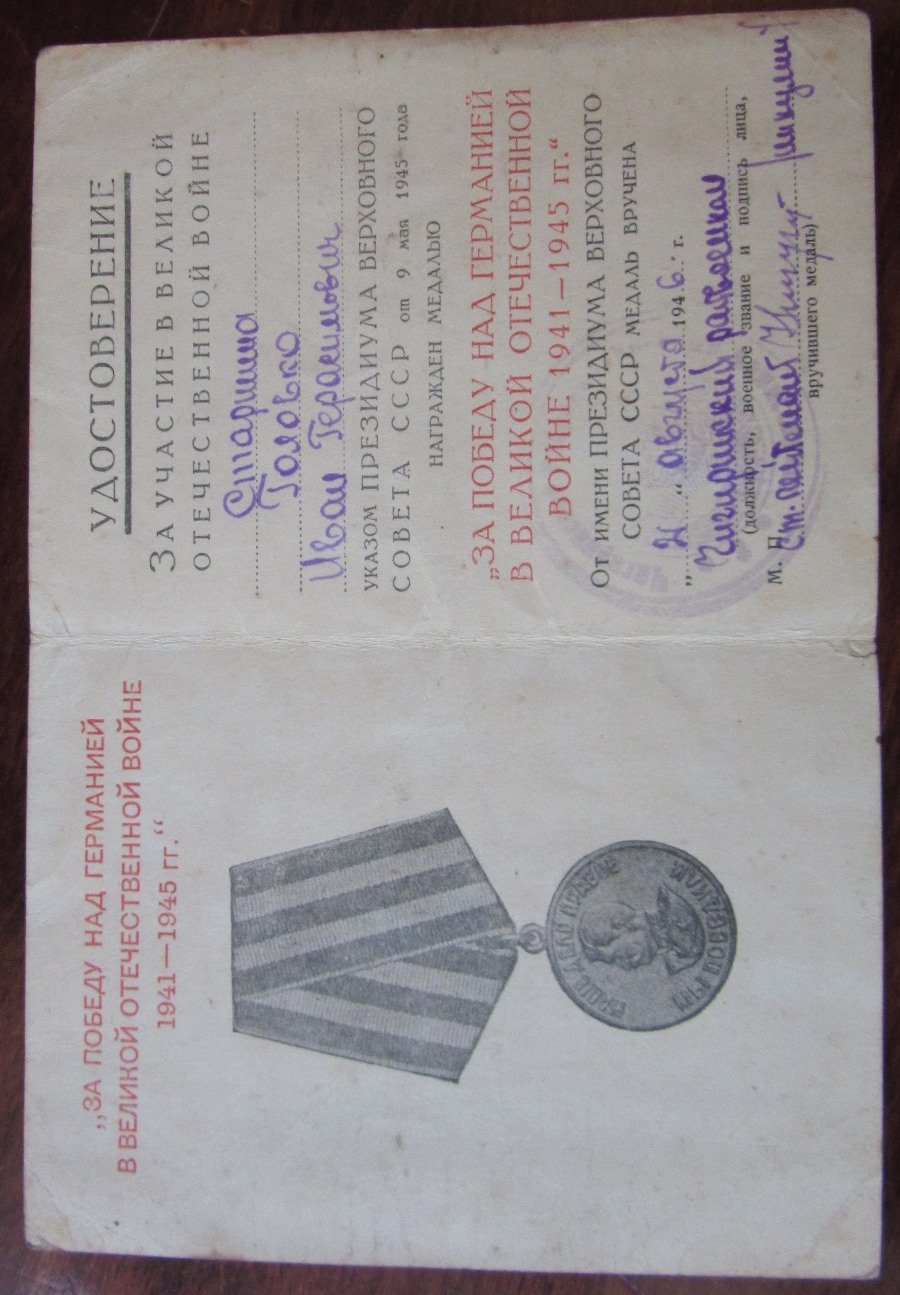 „ЗА ПОБЕДУ НАД ГЕРМАНИЕЙ
В ВЕЛИКОЙ ОТЕЧЕСТВЕННОЙ ВОЙНЕ
1941—1945 гг.“
НАШЕ ДЕЛО ПРАВОЕ
МЫ ПОБЕДИЛИ
УДОСТОВЕРЕНИЕ
ЗА УЧАСТИЕ В ВЕЛИКОЙ
ОТЕЧЕСТВЕННОЙ ВОЙНЕ
Старшина
Головко
Иван Герасимович
УКАЗОМ ПРЕЗИДИУМА ВЕРХОВНОГО
СОВЕТА СССР от 9 мая 1945 года
НАГРАЖДЕН МЕДАЛЬЮ
„ЗА ПОБЕДУ НАД ГЕРМАНИЕЙ
В ВЕЛИКОЙ ОТЕЧЕСТВЕННОЙ
ВОЙНЕ 1941—1945 гг.“
ОТ ИМЕНИ ПРЕЗИДИУМА ВЕРХОВНОГО
СОВЕТА СССР МЕДАЛЬ ВРУЧЕНА
„ “ августа 1946 г.
райвоенком
(должность, военное звание и подпись лица,
М. П. Ст. лейтенант
вручившего медаль)